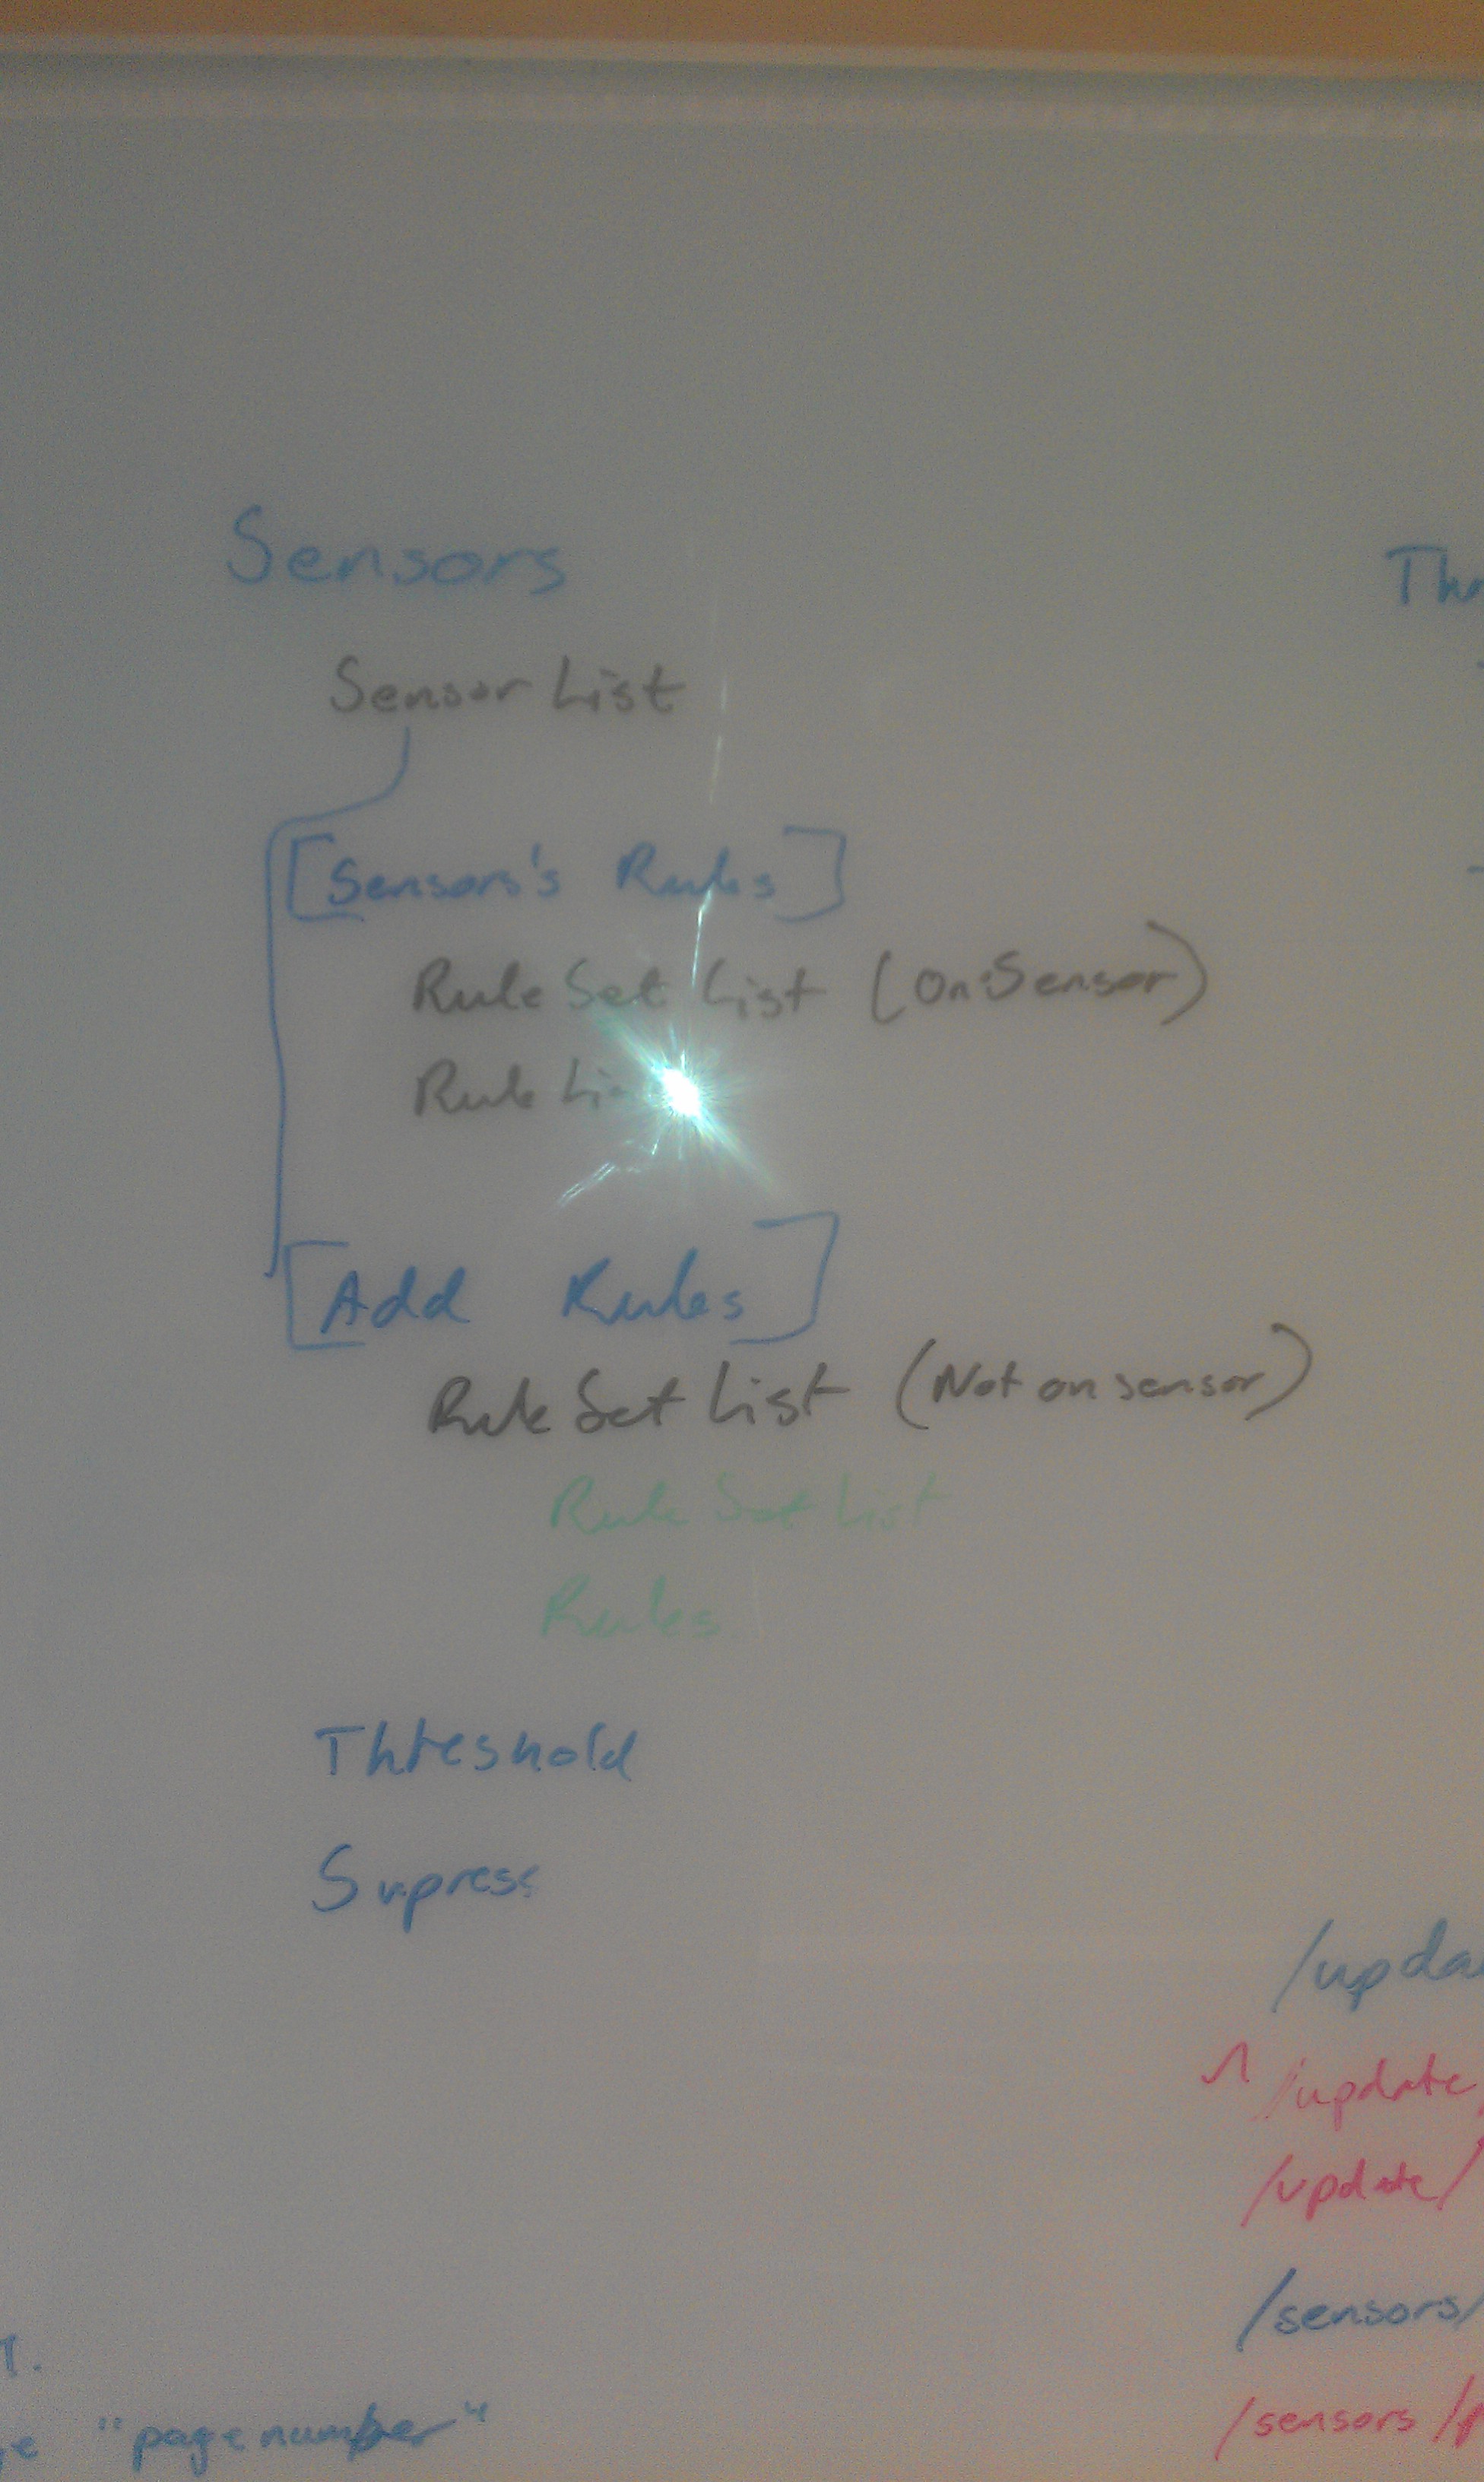 Sensors
Sensor List
[Sensors's Rules]
Rule Set List (On Sensor)
Rule
[Add Rules]
Rule Set List (Not on sensor)
Rule Set List
Rules
Threshold
Supress
/update
/update/
/sensors/
/sensors/
"page number"